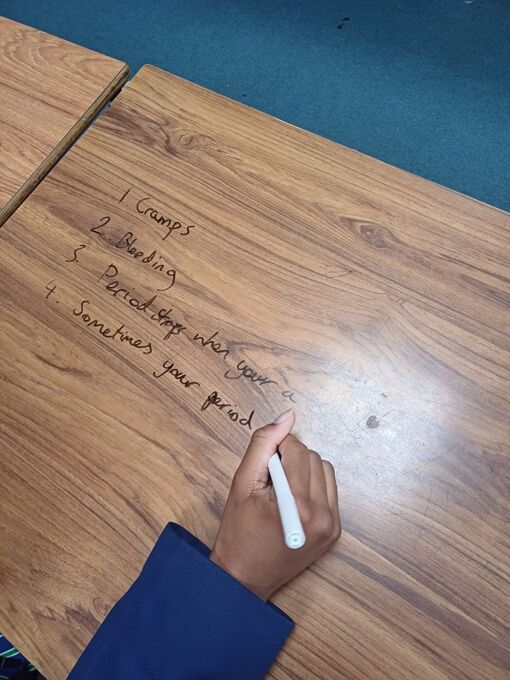 1. Cramps
2. Bleeding
3. Period stops when your a
4. Sometimes your period